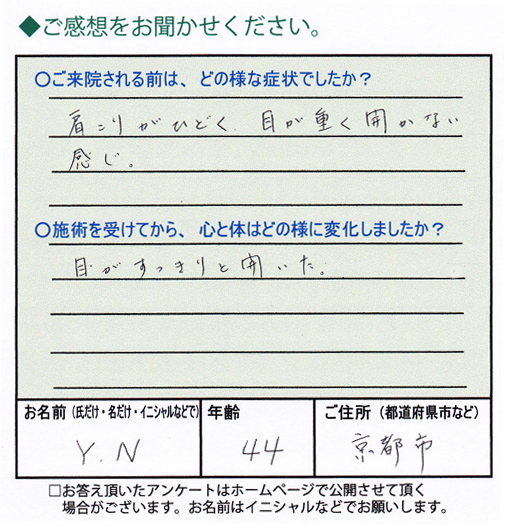 ◆ご感想をお聞かせください。
○ご来院される前は、どの様な症状でしたか？
肩こりがひどく、目が重く開かない
感じ。
○施術を受けてから、心と体はどの様に変化しましたか？
目がすっきりと開いた。
お名前（氏だけ・名だけ・イニシャルなどで） 年齢 ご住所（都道府県市など）
Y.N 44 京都市
□お答え頂いたアンケートはホームページで公開させて頂く
場合がございます。お名前はイニシャルなどでお願いします。